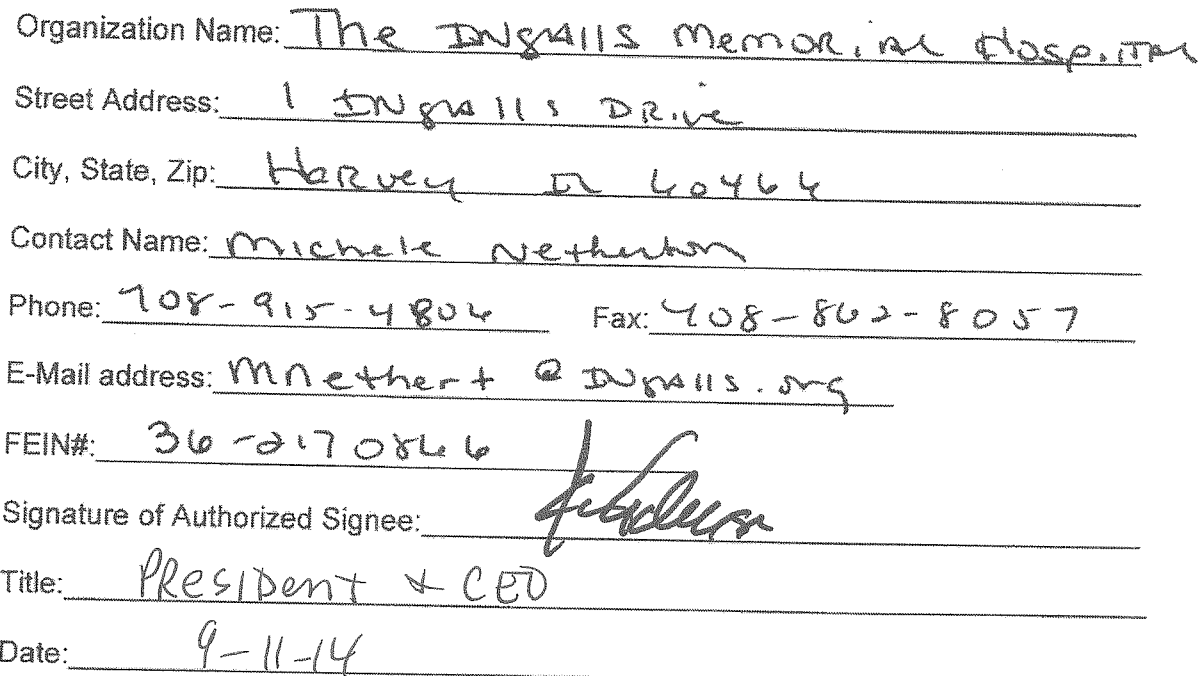 Organization Name: The INgAlls MemoRial Hospital
Street Address: 1 INgAlls DRive
City, State, Zip: HaRvey IL 60466
Contact Name: Michele Netherton
Phone: 708-915-4806 Fax: 708-862-8057
E-Mail address: Mnethert @ INgAlls.org
FEIN#: 36-2170866
Signature of Authorized Signee:
Title: PResiDent & CEO
Date: 9-11-14